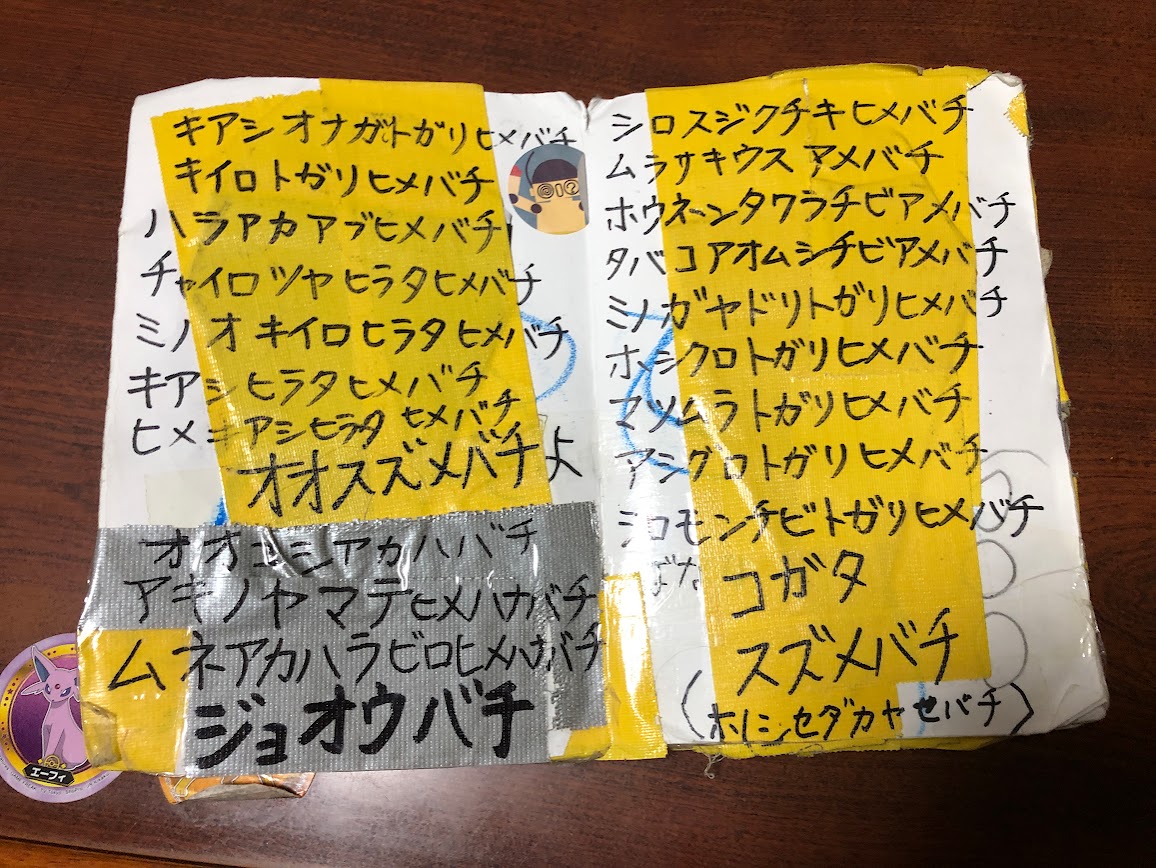 キアシオナガトガリヒメバチ
キイロトガリヒメバチ
ハラアカアブヒメバチ
チャイロツヤヒラタヒメバチ
ミノオキイロヒラタヒメバチ
キアシヒラタヒメバチ
ヒメキアシヒラタヒメバチ
オオスズメバチ
オオコシアカハバチ
アキノヤマテヒメハナバチ
ムネアカハラビロヒメハナバチ
ジョオウバチ
エーフィ
シロスジクチキヒメバチ
ムラサキウスアメバチ
ホウネンタワラチビアメバチ
タバコアオムシチビアメバチ
ミノガヤドリトガリヒメバチ
ホシクロトガリヒメバチ
マツムラトガリヒメバチ
アシグロトガリヒメバチ
シロモンチビトガリヒメバチ
コガタ
スズメバチ
(ホソシセダカヤセバチ)